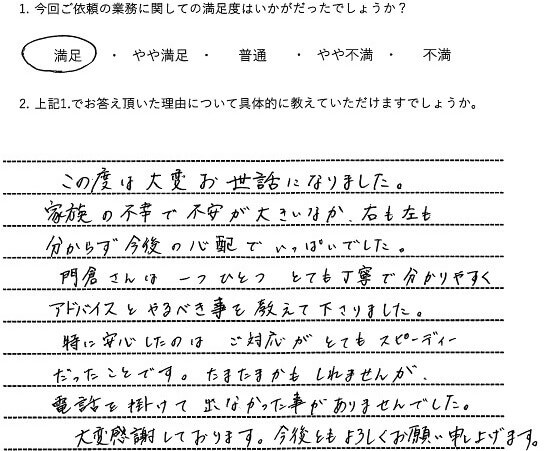 1. 今回ご依頼の業務に関しての満足度はいかがだったでしょうか？
満足 ・ やや満足 ・ 普通 ・ やや不満 ・ 不満
2. 上記1.でお答え頂いた理由について具体的に教えていただけますでしょうか。
この度は大変お世話になりました。
家族の不幸で不安が大きいなか、右も左も
分からず今後の心配でいっぱいでした。
門倉さんは一つひとつとても丁寧で分かりやすく
アドバイスとやるべき事を教えて下さりました。
特に安心したのはご対応がとてもスピーディー
だったことです。たまたまかもしれませんが、
電話を掛けて出なかった事がありませんでした。
大変感謝しております。今後ともよろしくお願い申し上げます。